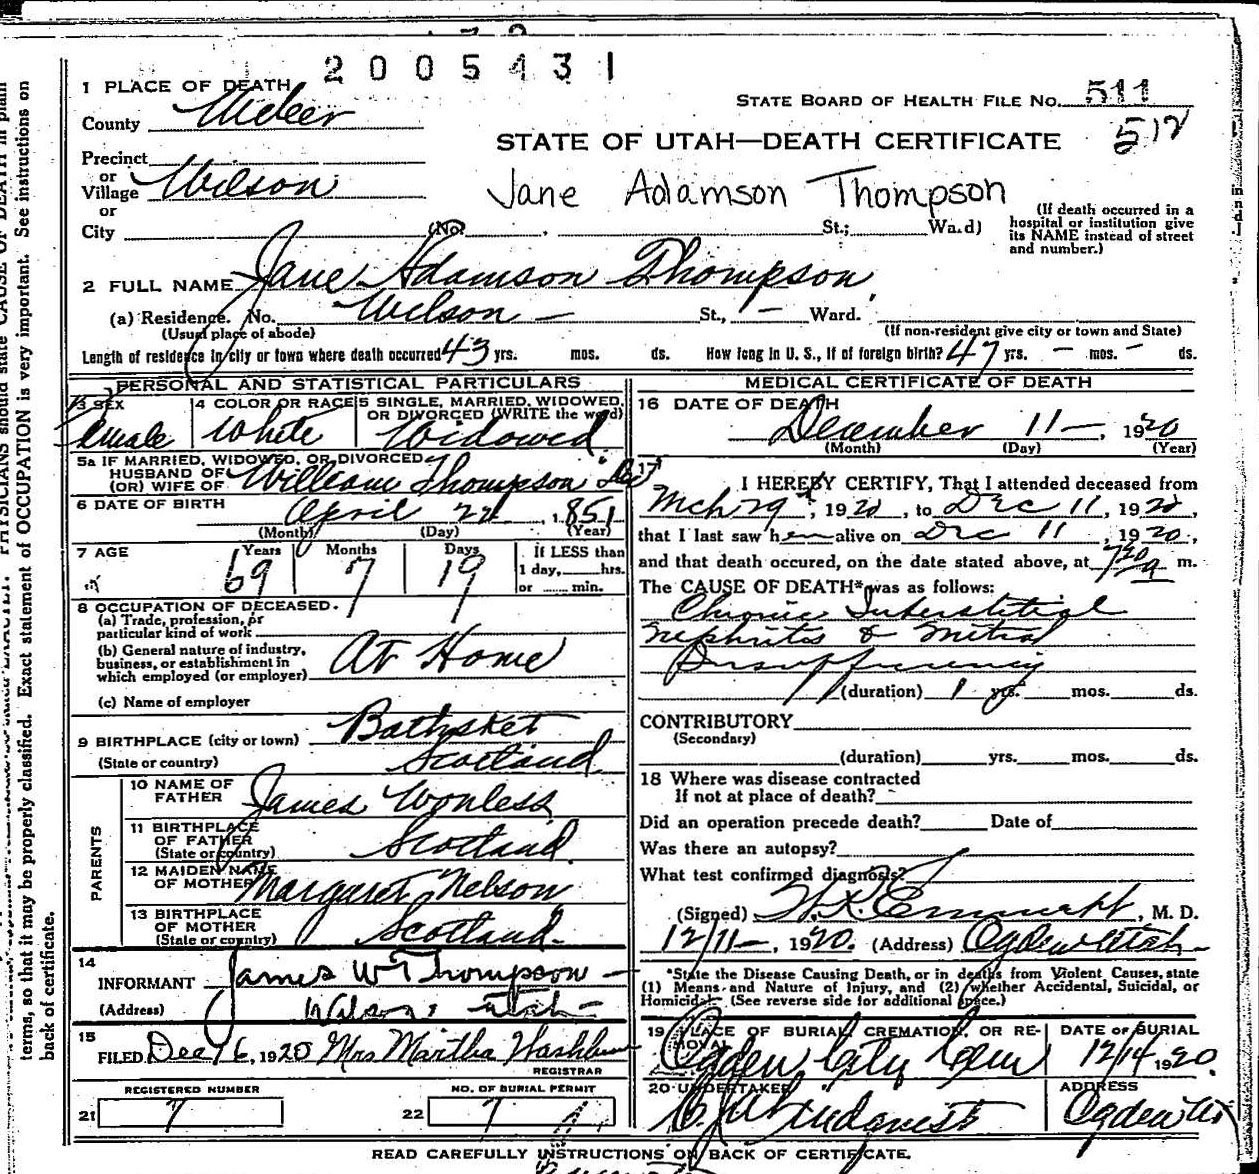 2005431
1 PLACE OF DEATH
STATE BOARD OF HEALTH FILE No. 511
County Weber
512
STATE OF UTAH—DEATH CERTIFICATE
Precinct
or
Village Wilson
Jane Adamson Thompson
or
City (No. , St.; Ward)
(If death occurred in a
hospital or institution give
its NAME instead of street
and number.)
2 FULL NAME Jane Adamson Thompson
(a) Residence. No. Wilson — St., — Ward.
(Usual place of abode)
(If non-resident give city or town and State)
Length of residence in city or town where death occurred 43 yrs. mos. ds. How long in U. S., if of foreign birth? 47 yrs. — mos. — ds.
PERSONAL AND STATISTICAL PARTICULARS
3 SEX
Female
4 COLOR OR RACE
White
5 SINGLE, MARRIED, WIDOWED,
OR DIVORCED (WRITE the word)
Widowed
5a IF MARRIED, WIDOWED, OR DIVORCED
HUSBAND OF
(OR) WIFE OF William Thompson Dec
6 DATE OF BIRTH
April 22, 1851
(Month) (Day) (Year)
7 AGE
Years Months Days
69 7 19
If LESS than
1 day, hrs.
or min.
8 OCCUPATION OF DECEASED.
(a) Trade, profession, or
particular kind of work
(b) General nature of industry,
business, or establishment in
which employed (or employer)
At Home
(c) Name of employer
9 BIRTHPLACE (city or town) Bathsket
(State or country) Scotland
PARENTS
10 NAME OF
FATHER James Wonless
11 BIRTHPLACE
OF FATHER
(State or country) Scotland
12 MAIDEN NAME
OF MOTHER Margaret Nelson
13 BIRTHPLACE
OF MOTHER
(State or country) Scotland
14
INFORMANT James W Thompson
(Address) Wilson Utah
15
FILED Dec 16, 1920 Mrs Martha Washburn
REGISTRAR
REGISTERED NUMBER
21 7
NO. OF BURIAL PERMIT
22 7
MEDICAL CERTIFICATE OF DEATH
16 DATE OF DEATH
December 11 —, 1920
(Month) (Day) (Year)
17
I HEREBY CERTIFY, That I attended deceased from
Mch 29, 1920, to Dec 11, 1920,
that I last saw her alive on Dec 11, 1920,
and that death occured, on the date stated above, at 7 20 a m.
The CAUSE OF DEATH* was as follows:
Chronic Interstitial
Nephritis & Mitral
Insufficiency
(duration) 1 yrs. mos. ds.
CONTRIBUTORY
(Secondary)
(duration) yrs. mos. ds.
18 Where was disease contracted
If not at place of death?
Did an operation precede death? Date of
Was there an autopsy?
What test confirmed diagnosis?
(Signed) , M. D.
12/11—, 1920. (Address) Ogden Utah
*State the Disease Causing Death, or in deaths from Violent Causes, state
(1) Means and Nature of Injury, and (2) whether Accidental, Suicidal, or
Homicidal. (See reverse side for additional space.)
19 PLACE OF BURIAL, CREMATION, OR RE-
MOVAL
Ogden City Cem
DATE OF BURIAL
12/14 1920.
20 UNDERTAKER
Lindquist
ADDRESS
Ogden Ut
READ CAREFULLY INSTRUCTIONS ON BACK OF CERTIFICATE.
PHYSICIANS should state CAUSE OF DEATH in plain
terms, so that it may be properly classified. Exact statement of OCCUPATION is very important. See instructions on
back of certificate.